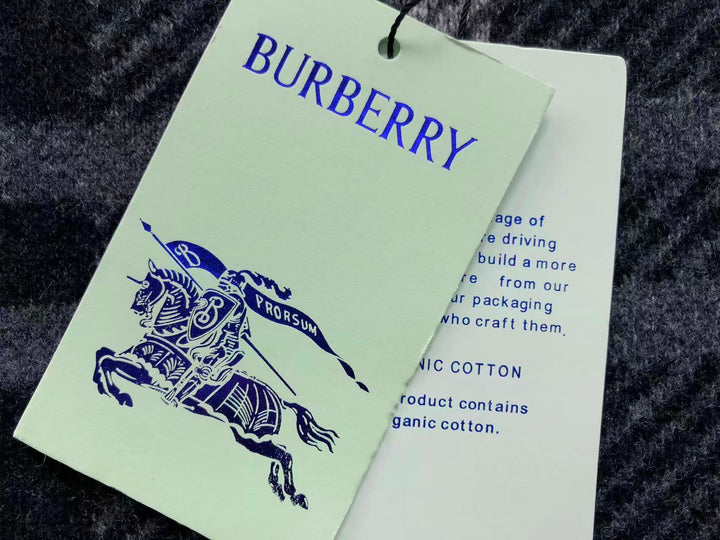 BURBERRY
B
PRORSUM
B
age of
re driving
build a more
re from our
ur packaging
who craft them.
NIC COTTON
roduct contains
ganic cotton.